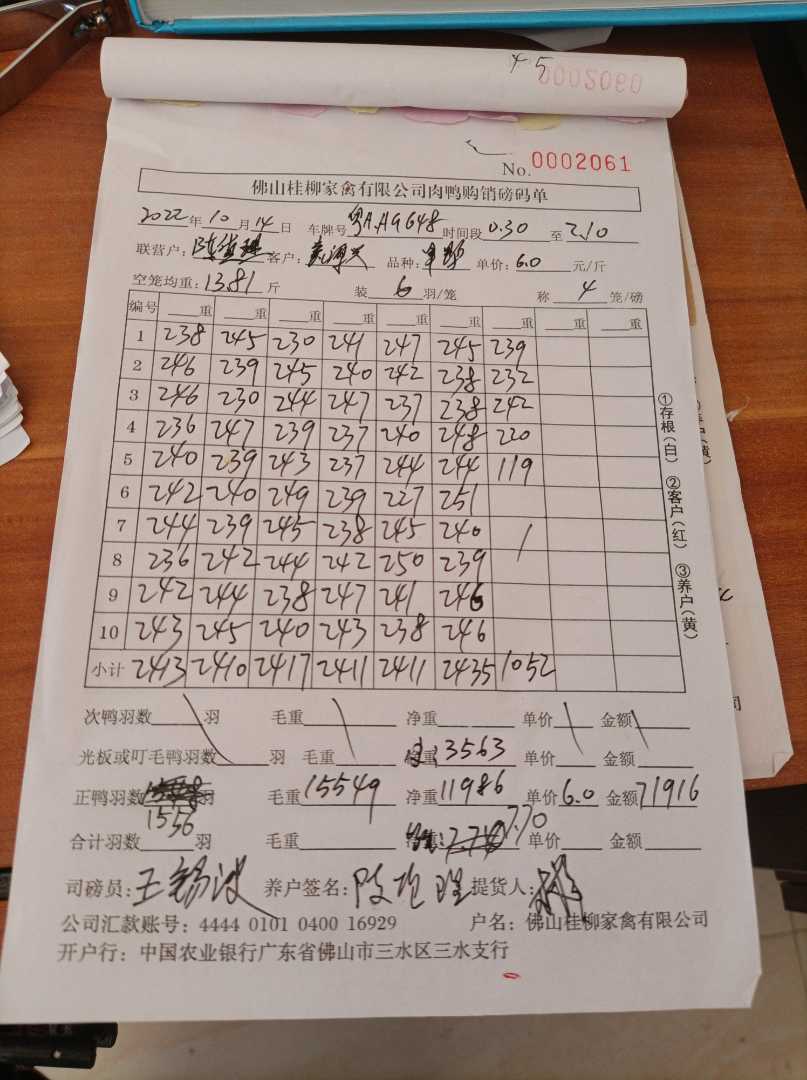 45
0002060
No. 0002061
佛山桂柳家禽有限公司肉鸭购销磅码单
2022年10月14日 车牌号粤A.A9648时间段0.30至2.10
联营户: 客户: 品种: 单价:6.0元/斤
空笼均重:13.81斤 装6羽/笼 称4笼/磅
编号 重 重 重 重 重 重 重 重 重
1 238 245 230 241 247 245 239
2 246 239 245 240 242 238 232
3 246 230 244 247 237 238 242
4 236 247 239 237 240 248 220
5 240 239 243 237 244 244 119
6 242 240 249 239 227 251
7 244 239 245 238 245 240
8 236 242 244 242 250 239
9 242 244 238 247 241 246
10 243 245 240 243 238 246
小计 2413 2410 2417 2411 2411 2435 1052
次鸭羽数 羽 毛重 净重 单价 金额
光板或叮毛鸭羽数 羽 毛重 3563 单价 金额
正鸭羽数 羽 毛重15549 净重11986 单价6.0 金额71916
1556
合计羽数 羽 毛重 7.70 单价 金额
司磅员:王锡波 养户签名: 提货人:
公司汇款账号:4444 0101 0400 16929 户名:佛山桂柳家禽有限公司
开户行:中国农业银行广东省佛山市三水区三水支行
①存根(白) ②客户(红) ③养户(黄)